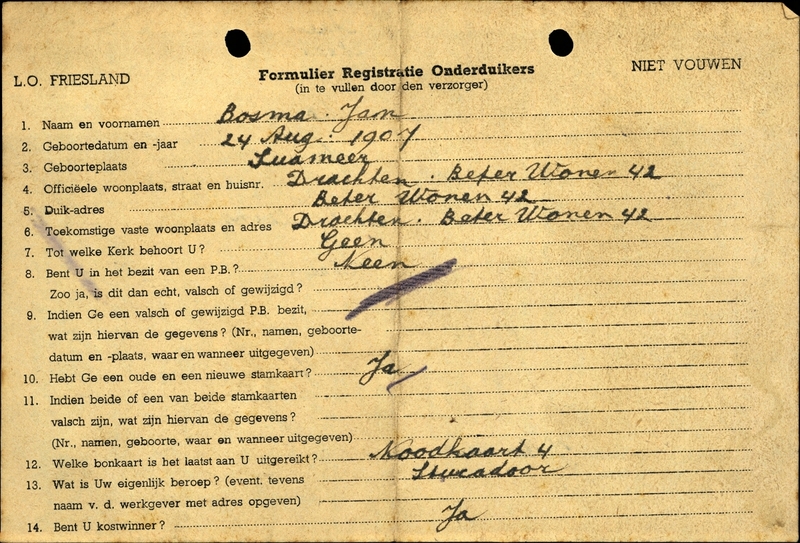 L.O. FRIESLAND
Formulier Registratie Onderduikers
(in te vullen door den verzorger)
NIET VOUWEN
1. Naam en voornamen Bosma. Jan
2. Geboortedatum en -jaar 24 Aug. 1907
3. Geboorteplaats Suameer
4. Officiëele woonplaats, straat en huisnr. Drachten. Beter Wonen 42
5. Duik-adres Beter Wonen 42
6. Toekomstige vaste woonplaats en adres Drachten. Beter Wonen 42
7. Tot welke Kerk behoort U? Geen
8. Bent U in het bezit van een P.B.? Neen
Zoo ja, is dit dan echt, valsch of gewijzigd?
9. Indien Ge een valsch of gewijzigd P.B. bezit,
wat zijn hiervan de gegevens? (Nr., namen, geboorte-
datum en -plaats, waar en wanneer uitgegeven)
10. Hebt Ge een oude en een nieuwe stamkaart? Ja
11. Indien beide of een van beide stamkaarten
valsch zijn, wat zijn hiervan de gegevens?
(Nr., namen, geboorte, waar en wanneer uitgegeven)
12. Welke bonkaart is het laatst aan U uitgereikt? Noodkaart 4
13. Wat is Uw eigenlijk beroep? (event. tevens Stucadoor
naam v. d. werkgever met adres opgeven)
14. Bent U kostwinner? Ja